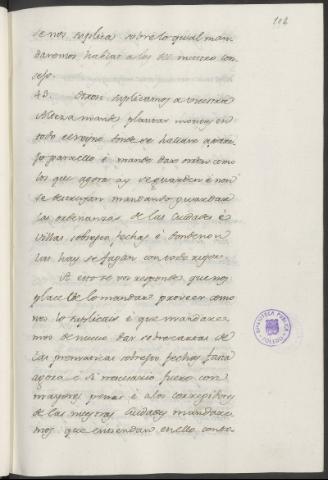 102
se nos suplica sobre lo qual man
daremos hablar a los del nuestro con
sejo.
43. Otrosi suplicamos a vuestra
Alteza mande plantar montes en
todo el reyno donde se hallare apare
jo para ello è mande dar orden como
los que agora ay se guarden è non
se destruyan mandando guardar
las ordenanzas de las Ciudades è
Villas sobre esto fechas è donde non
las hay se fagan con todo rigor.
A esto se vos responde que nos
place de lo mandar proveer como
nos lo suplicais è que mandare
mos de nuevo dar sobrecartas de
las prematicas sobre esto fechas fasta
agora è si necesario fuere con
mayores penas è a los corregidores
de las nuestras Ciudades mandare
mos que entiendan en ello conta
BIBLIOTECA PUBLICA
TOLEDO